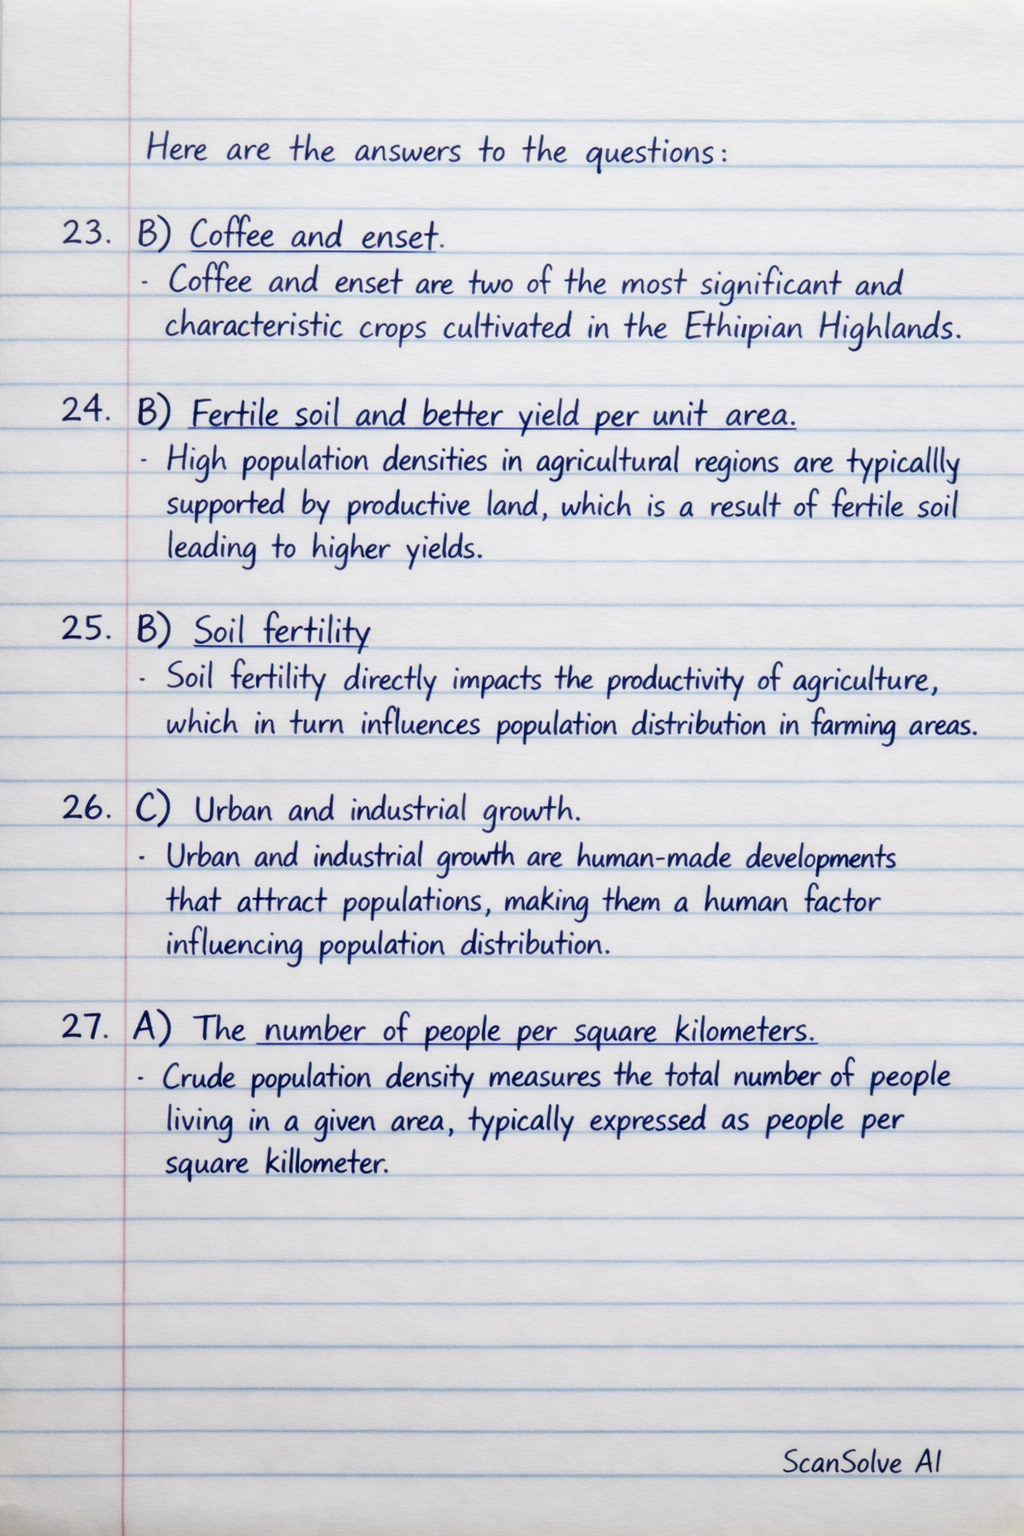 Here are the answers to the questions:
23. B) Coffee and enset.
- Coffee and enset are two of the most significant and
characteristic crops cultivated in the Ethiipian Highlands.
24. B) Fertile soil and better yield per unit area.
- High population densities in agricultural regions are typicallly
supported by productive land, which is a result of fertile soil
leading to higher yields.
25. B) Soil fertility
- Soil fertility directly impacts the productivity of agriculture,
which in turn influences population distribution in farming areas.
26. C) Urban and industrial growth.
- Urban and industrial growth are human-made developments
that attract populations, making them a human factor
influencing population distribution.
27. A) The number of people per square kilometers.
- Crude population density measures the total number of people
living in a given area, typically expressed as people per
square killometer.
ScanSolve AI